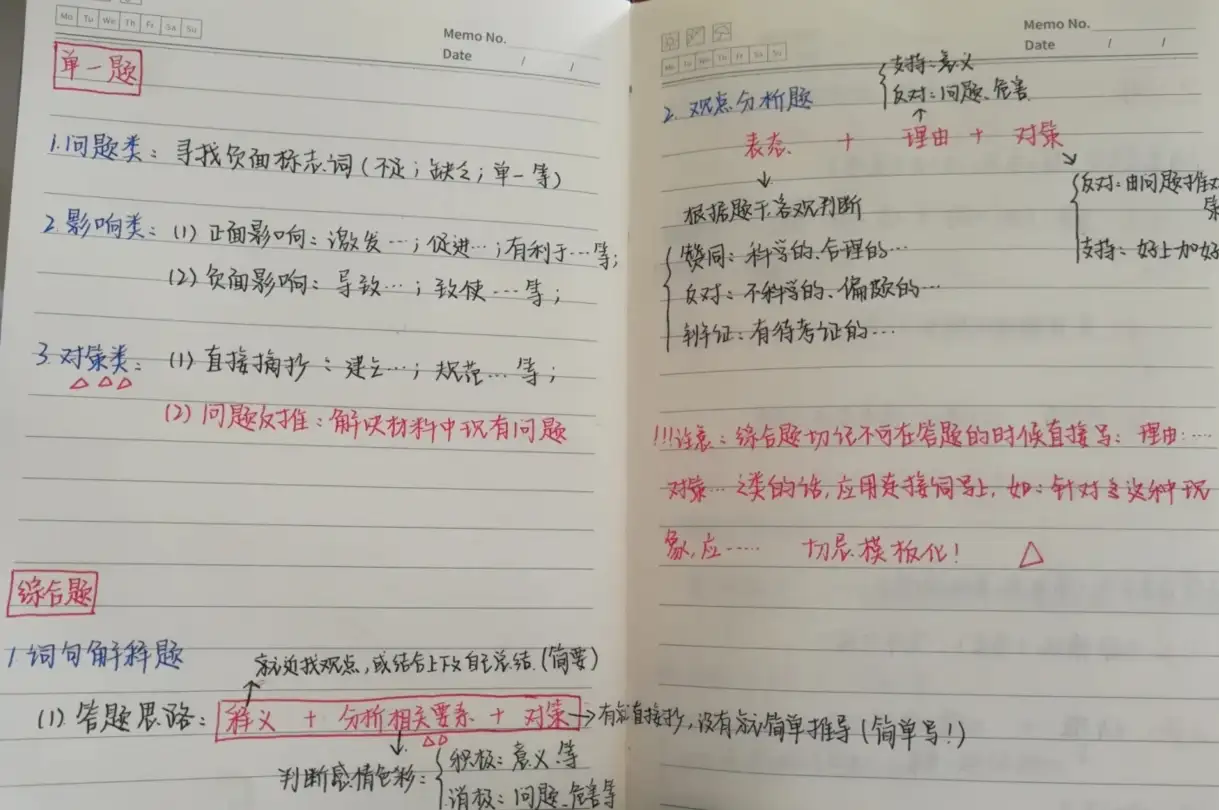 Mo Tu We Th Fr Sa Su
Memo No.
Date / /
单一题
1.问题类：寻找负面标志词(不足；缺乏；单一等)
2.影响类：(1)正面影响：激发…；促进…；有利于…等；
(2)负面影响：导致…；致使…等；
3.对策类：(1)直接摘抄：建立…；规范…等；
(2)问题反推：解决材料中现有问题
综合题
1.词句解释题
就近找观点,或结合上下文自己总结.(简要)
(1)答题思路：释义 + 分析相关要素 + 对策→有就直接抄,没有就简单推导(简单写!)
判断感情色彩：
积极：意义等
消极：问题、危害等
Mo Tu We Th Fr Sa Su
Memo No.
Date / /
支持：意义
2.观点分析题
反对：问题、危害
表态 + 理由 + 对策
根据题干,客观判断
反对：由问题推对
策
赞同：科学的、合理的…
支持：好上加好
反对：不科学的、偏颇的…
辩证：有待考证的…
!!!注意：综合题切记不可在答题的时候直接写：理由：…
对策…之类的话,应用连接词写上,如：针对这种现
象,应…… 切忌模板化！